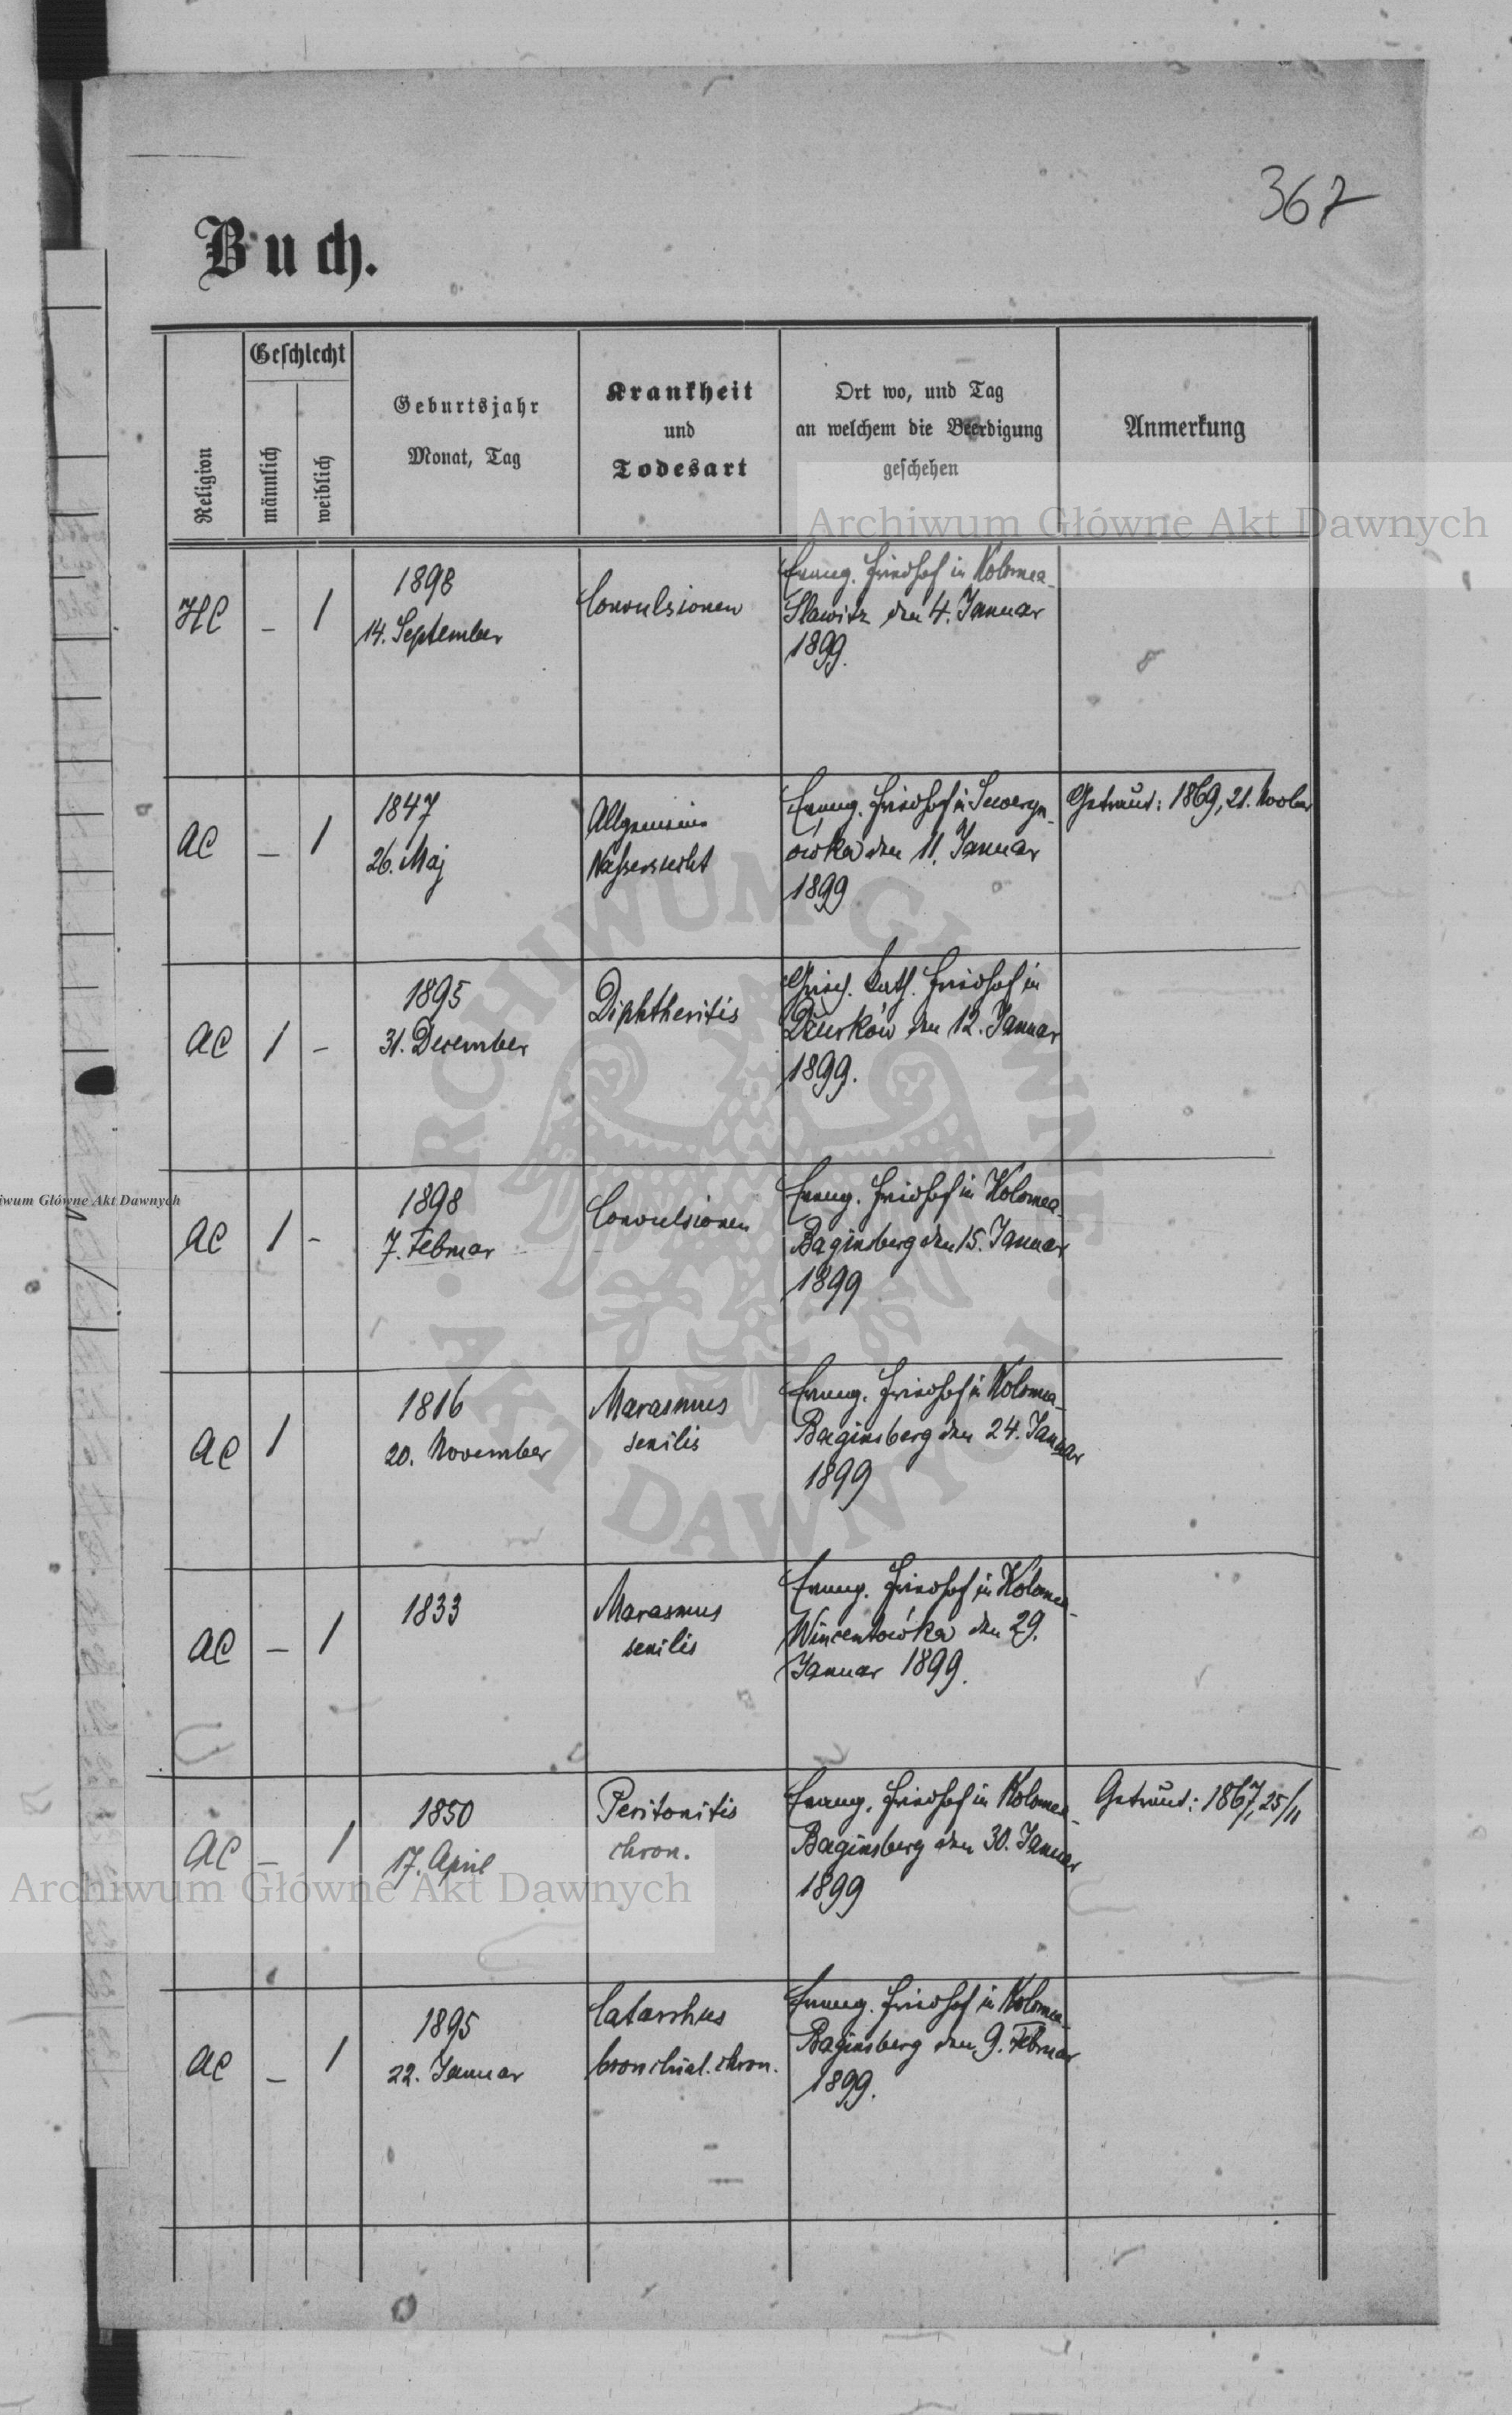 367
Buch.
Religion
Geschlecht
männlich
weiblich
Geburtsjahr
Monat, Tag
Krankheit
und
Todesart
Ort wo, und Tag
an welchem die Beerdigung
geschehen
Anmerkung
Archiwum Główne Akt Dawnych
HC
–
1
1898
14. September
Convulsionen
Evang. Friedhof in Kolomea-
Slawitz den 4. Januar
1899.
AC
–
1
1847
26. Maj
Allgemeine
Wassersucht
Evang. Friedhof in Seweryn-
ówka den 11. Januar
1899
Getraut: 1869, 21. Novber
AC
1
–
1895
31. December
Diphtheritis
Griech. kath. Friedhof in
Dzurków den 12. Januar
1899.
AC
1
–
1898
7. Februar
Convulsionen
Evang. Friedhof in Kolomea-
Baginsberg den 15. Januar
1899
iwum Główne Akt Dawnych
AC
1
1816
20. November
Marasmus
senilis
Evang. Friedhof in Kolomea-
Baginsberg den 24. Januar
1899
ARCHIWUM GŁÓWNE
AKT DAWNYCH
AC
–
1
1833
Marasmus
senilis
Evang. Friedhof in Kolomea-
Wincentówka den 29.
Januar 1899.
AC
–
1
1850
17. April
Peritonitis
chron.
Evang. Friedhof in Kolomea-
Baginsberg den 30. Januar
1899
Getraut: 1867, 25/11
Archiwum Główne Akt Dawnych
AC
–
1
1895
22. Januar
Catarrhus
bronchial. chron.
Evang. Friedhof in Kolomea-
Baginsberg den 9. Februar
1899.